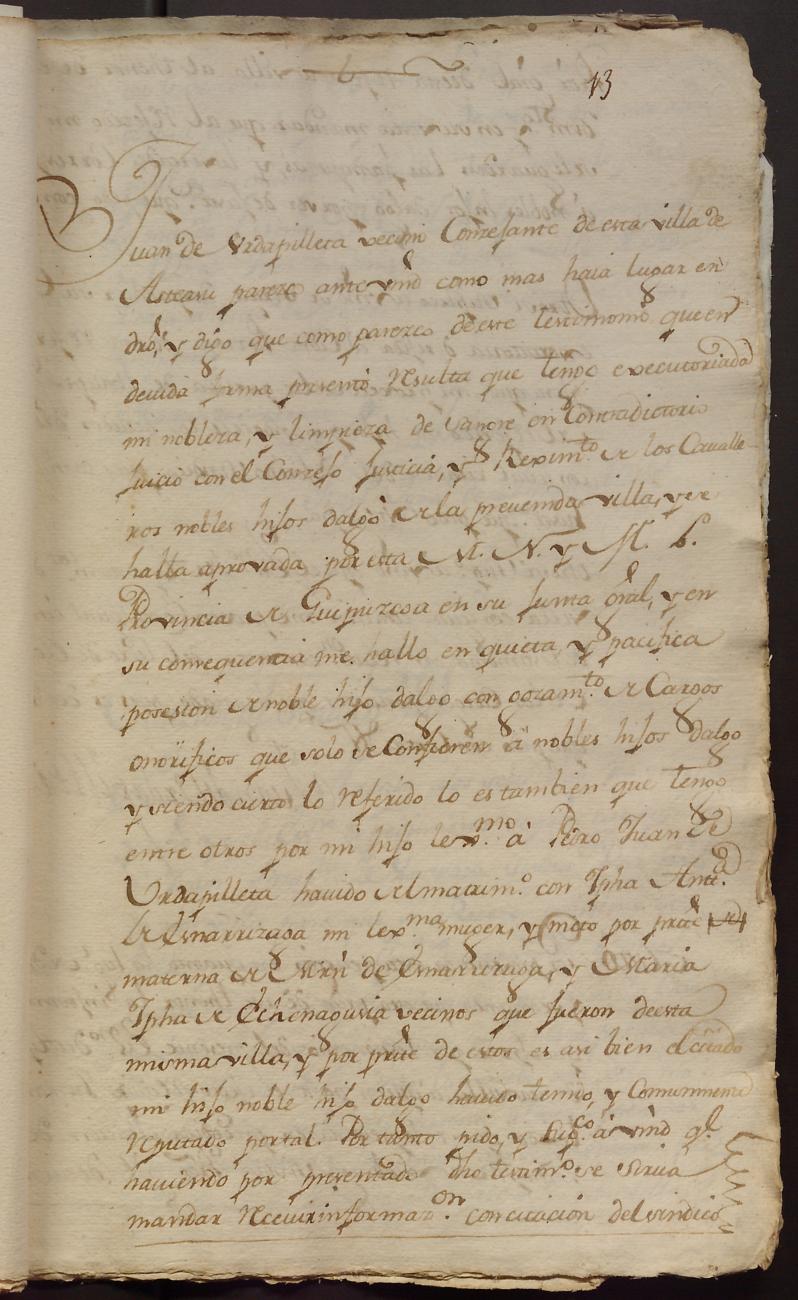 13
Juan de Urdapilleta vecino Conzejante de esta villa de
Asteasu parezco ante vmd como mas haia lugar en
dro, y digo que como parezco de este testimonio que en
devida forma presento resulta que tengo executoriada
mi nobleza, y limpieza de sangre en Contradictorio
Juicio con el Conzejo Justicia, y Reximto de los Cavalle-
ros nobles hijos dalgo de la prevenida villa, y se
halla aprovada por esta M. N. y M. L.
Provincia de Guipuzcoa en su Junta gral, y en
su consequencia me hallo en quieta y pacifica
posesion de noble hijo dalgo con gozamto de Cargos
onorificos que solo se Confieren à nobles hijos dalgo
y siendo cierto lo referido lo es tambien que tengo
entre otros por mi hijo lexmo à Pedro Juan de
Urdapilleta havido del matrimo con Jpha Anta
de Ernarrizaga mi lexma muger, y nieto por parte
materna de Mrn de Ernarrizaga, y Maria
Jpha de Echenagusia vecinos que fueron de esta
misma villa, y por prte de estos es asi bien el citado
mi hijo noble hijo dalgo havido tenido, y Comunmente
reputado por tal. Por tanto pido, y supco à vmd qe
haviendo por presentado dho testimo se sirva
mandar recevir informazon con citacion del sindico